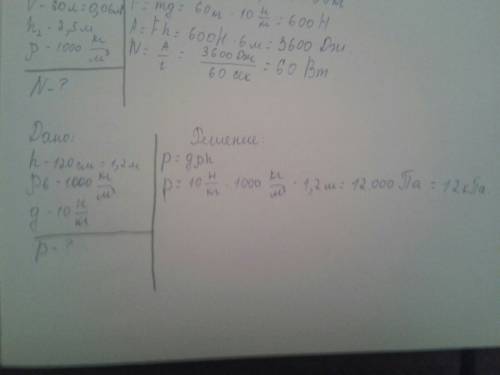 h₂ - 2,5м
ρ - 1000 кг/м³
N - ?
F = mg = 60кг · 10 Н/кг = 600 Н
A = Fh = 600Н · 6м = 3600 Дж
N = A/t = 3600 Дж/60 сек = 60 Вт
Дано:
h - 120см = 1,2м
ρв - 1000 кг/м³
g - 10 Н/кг
p - ?
Решение:
p = gρh
p = 10 Н/кг · 1000 кг/м³ · 1,2м = 12 000 Па = 12кПа